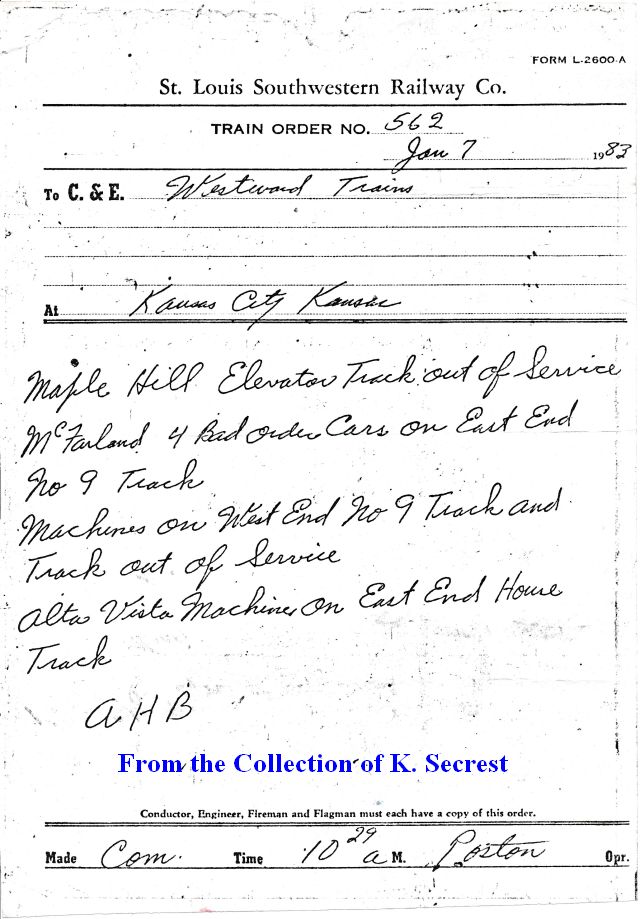 FORM L-2600-A
St. Louis Southwestern Railway Co.
TRAIN ORDER NO. 562
Jan 7 1983
To C. & E. Westward Trains
At Kansas City Kansas
Maple Hill Elevator Track out of Service
McFarland 4 Bad order Cars on East End
No 9 Track
Machines on West End No 9 Track and
Track out of Service
Alta Vista Machines on East End House
Track
A H B
From the Collection of K. Secrest
Conductor, Engineer, Fireman and Flagman must each have a copy of this order.
Made Com. Time 10 29 a M. Poston Opr.